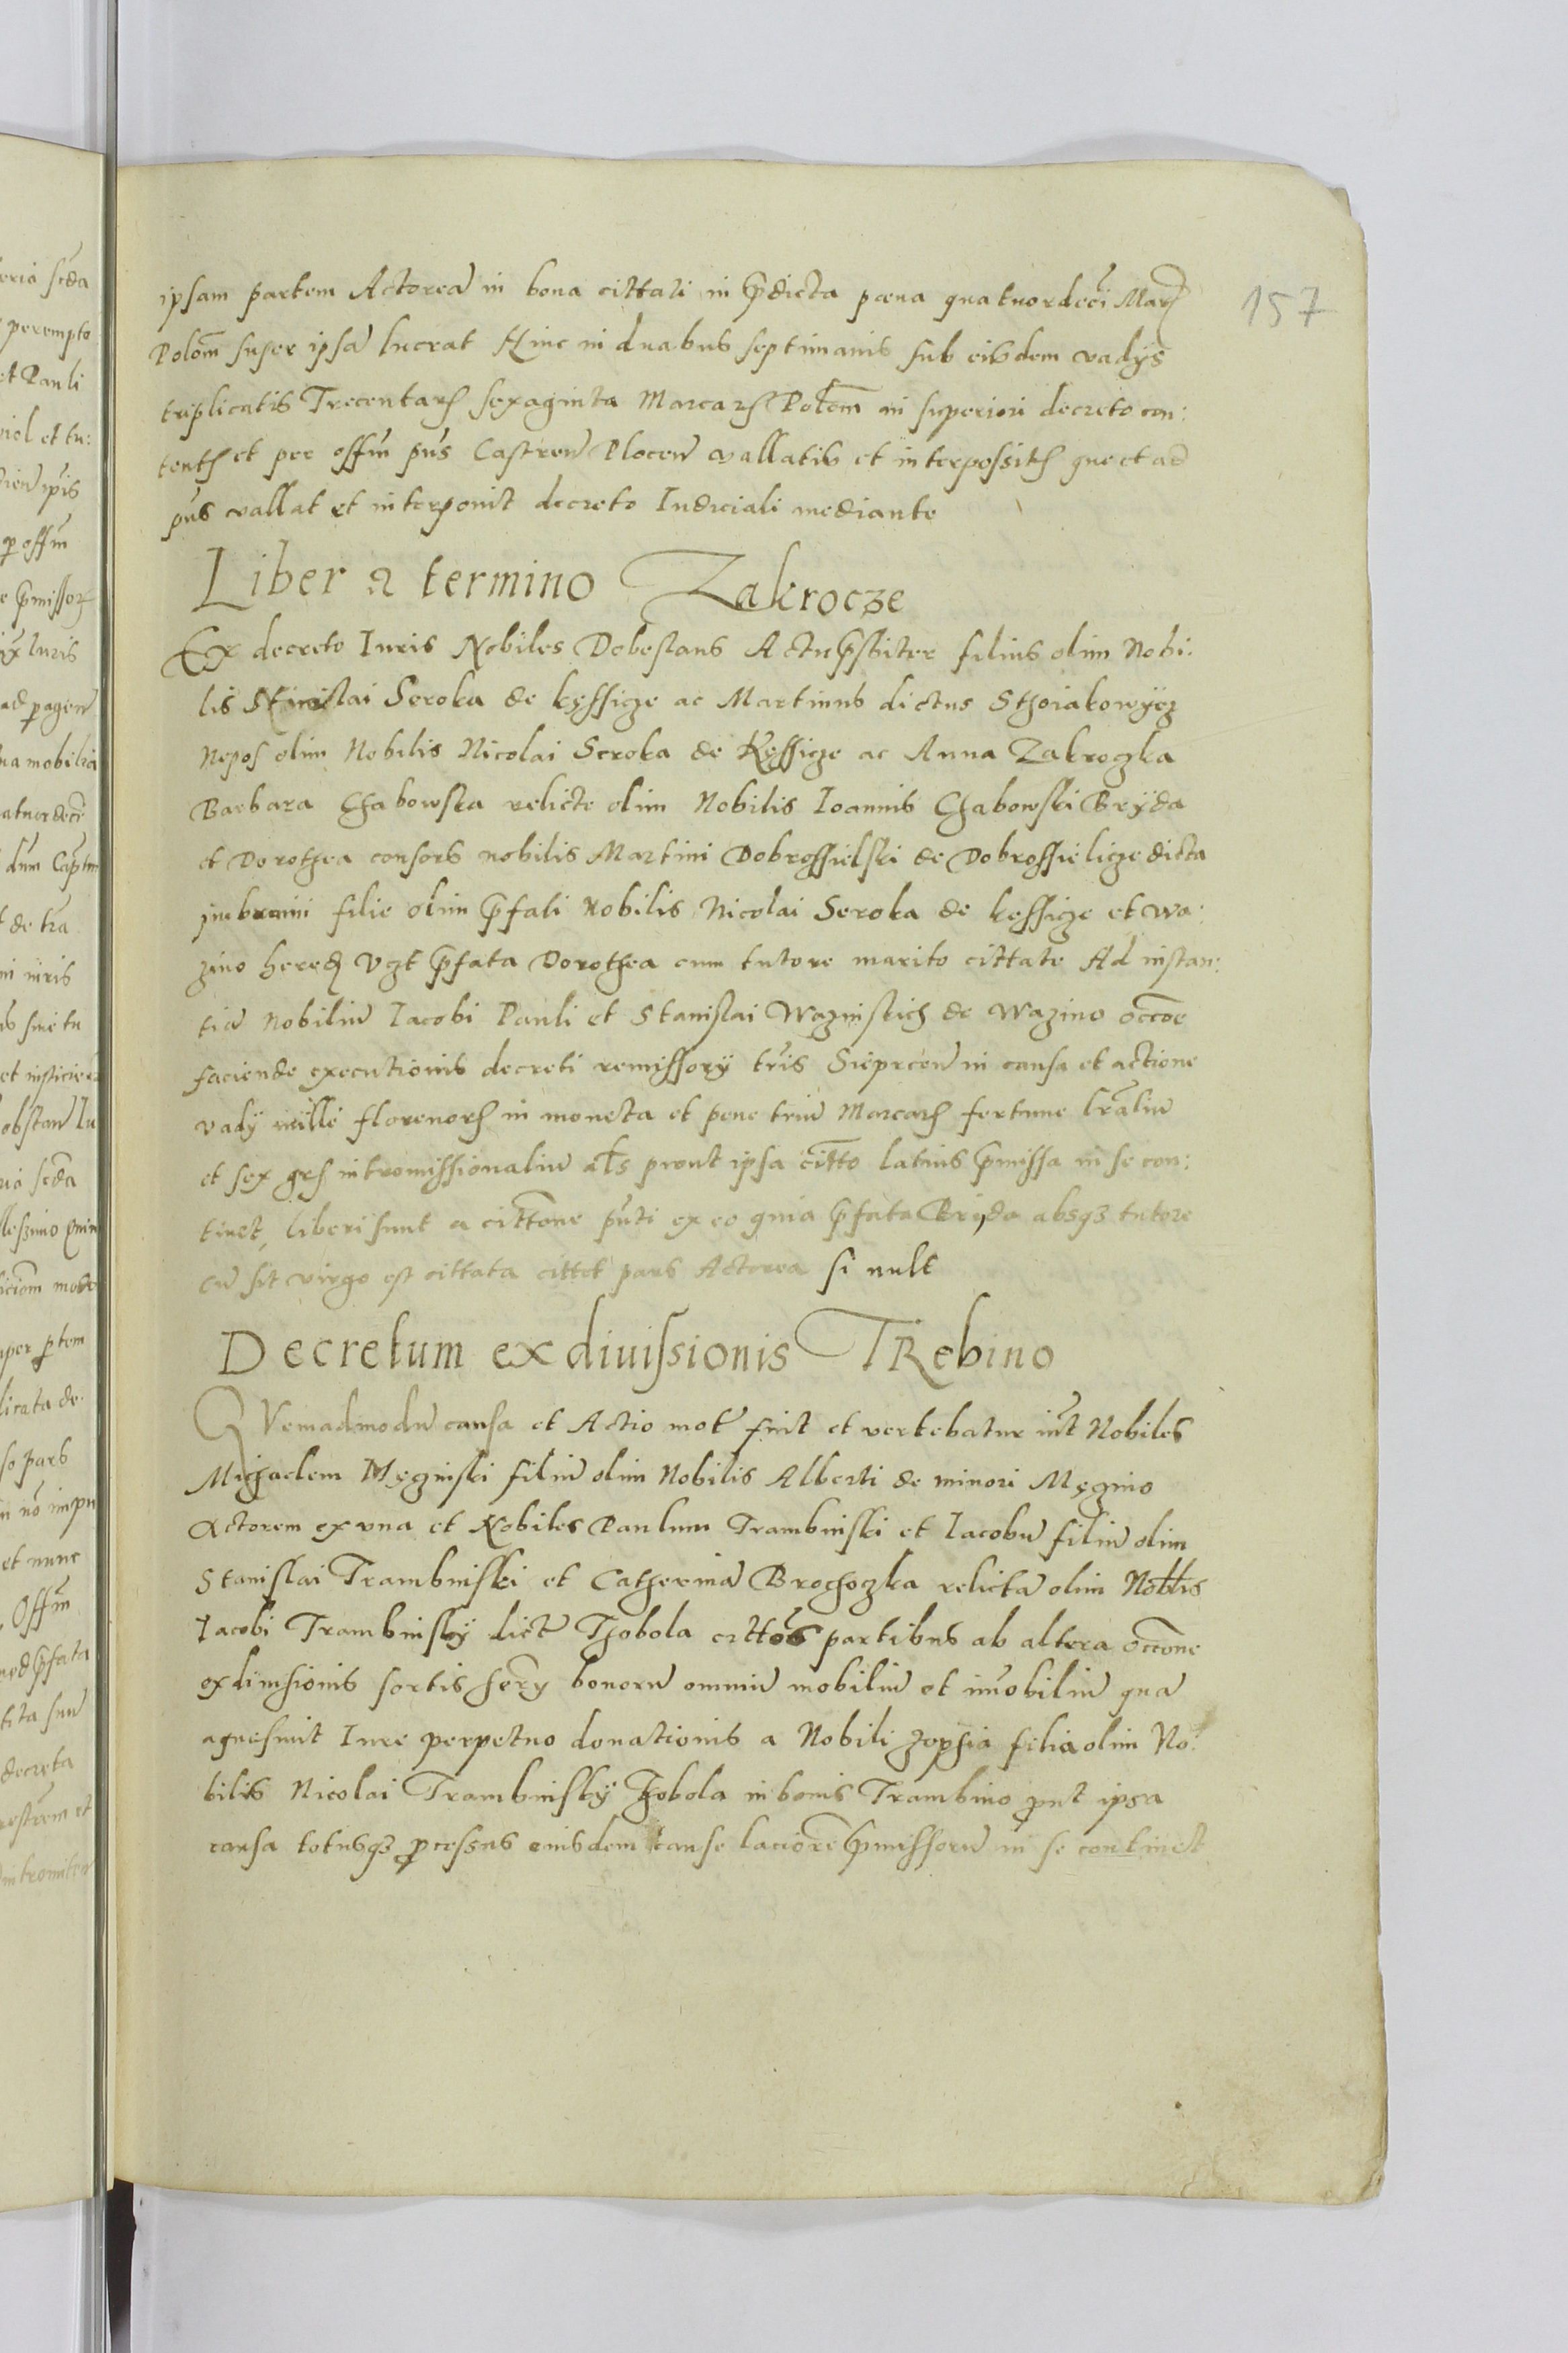 157
ipsam partem Actorea͂ in bona cittati in p͂dicta pœna quatuordeci͂ Marc
Polo͂m super ipsa͂ lucrat Hinc in duabus septimanis sub eiusdem vadÿs
triplicatis Trecentarꝝ sexaginta Marcarꝝ Pole͂m in superiori decreto con:
tentꝭ et per offi͂m p͂ns Castren͂ Plocen͂ vallatis et interpossitꝭ que et ad
p͂ns vallat et interponit decreto Iudiciali mediante
Liber a termino Zakrocze
Ex decreto Iuris Nobiles Dobestaus filius olim Nobi:
lis Stanislai Seroka de kęssicze ac Martinus dictus Sthoiakowÿcz
Nepos olim Nobilis Nicolai Seroka de Kęssicze ac Anna Zakroczka
Barbara Chabowska relicte olim Nobilis Ioannis Chabowski Brÿda
et Dorothea consors nobilis Martini Dobrossielski de Dobrossielicze dicta
filie olim p͂fati Nobilis Nicolai Seroka de kęssicze et Wa:
zino heredꝭ vzt p͂fata Dorothea cum tutore marito cittate Ad instan:
tia͂ Nobiliu͂ Iacobi Pauli et Stanislai Wazniskich de Wazino occo͂e
faciende executionis decreti remissorÿ tr͂is Sieprcen͂ in causa et actione
vadÿ mille florenorꝝ in moneta et pene triu͂ Marcarꝝ fertune lr͂aliu͂
et sex grꝭ intromissionaliu͂ al͂s prout ipsa citt͂o latius p͂missa in se con:
tinet, liberi sunt a citto͂ne p͂nti ex eo quia p͂fata Brÿda absqꝫ tutore
cu͂ sit virgo est cittata cittet pars Actorea si vult
Decretum exdiuissionis TRebino
QVemadmodu͂ causa et Actio mot͂ fuit et vertebatur int͂ Nobiles
Michaelem Męzniski filiu͂ olim Nobilis Alberti de minori Męzino
Actorem ex vna et Nobiles Paulum Trambinski et Iacobu͂ filiu͂ olim
Stanislai Trambinski et Catherina͂ Brochoczka relicta͂ olim Nobl͂is
Iacobi Trambinskÿ dict͂ Thobola citto͂s partibus ab altera occo͂ne
exdiuisionis sortis bonoru͂ omniu͂ mobiliu͂ et im͂obiliu͂ qua͂
aquesiuit Iure perpetuo donationis a Nobili Zophia filia olim No:
bilis Nicolai Trambinskÿ Thobola in bonis Trambino ꝓut ipsa
causa totusqꝫ ꝓcessus eiusdem cause lacior͂e p͂missoru͂ in se continet